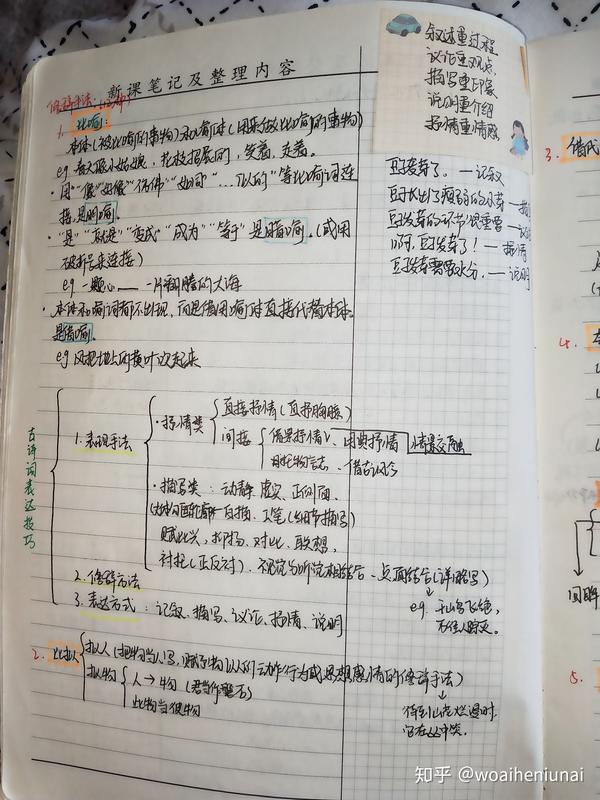 新课笔记及整理内容
修辞手法：
1. 比喻：
本体(被比喻的事物)和喻体(用来做比喻的事物)
eg 春天像小姑娘，花枝招展的，笑着，走着。
· 用"像""好像""仿佛""如同""…似的"等比喻词连
接是明喻。
· "是""就是""变成""成为""等于"是暗喻。(或用
破折号来连接)
eg 一颗心 —— 一片翻腾的大海
· 本体和喻词都不出现，而是借用喻体直接代替本体。
是借喻。
eg 风把地上的黄叶吹起来
古诗词表达技巧
1. 表现手法
· 抒情类
直接抒情(直抒胸臆)
间接
借景抒情 用典抒情 情景交融
托物言志、借古讽今
· 描写类：动静、虚实、正侧面、
白描、工笔(细节描写)
赋比兴，抑扬、对比、联想，
衬托(正反衬)、视觉与听觉相结合、点面结合(详略写)
eg. 千山鸟飞绝，
万径人踪灭。
2. 修辞方法
3. 表达方式：记叙、描写、议论、抒情、说明
2. 比拟
拟人(把物当人写，赋予物以人的动作行为或思想感情的修辞手法)
待到山花烂漫时，
它在丛中笑。
拟物
人→物 (君当作磐石)
此物当彼物
叙述重过程
议论重观点
描写重印象
说明重介绍
抒情重情感
豆子发芽了。— 记叙
豆子长出了 的 芽 — 描
豆子发芽的环节很重要 — 议
啊，豆子发芽了！— 抒情
豆子发芽需要水分。— 说明
3. 借代
4.
5.
回环
知乎 @woaiheniunai